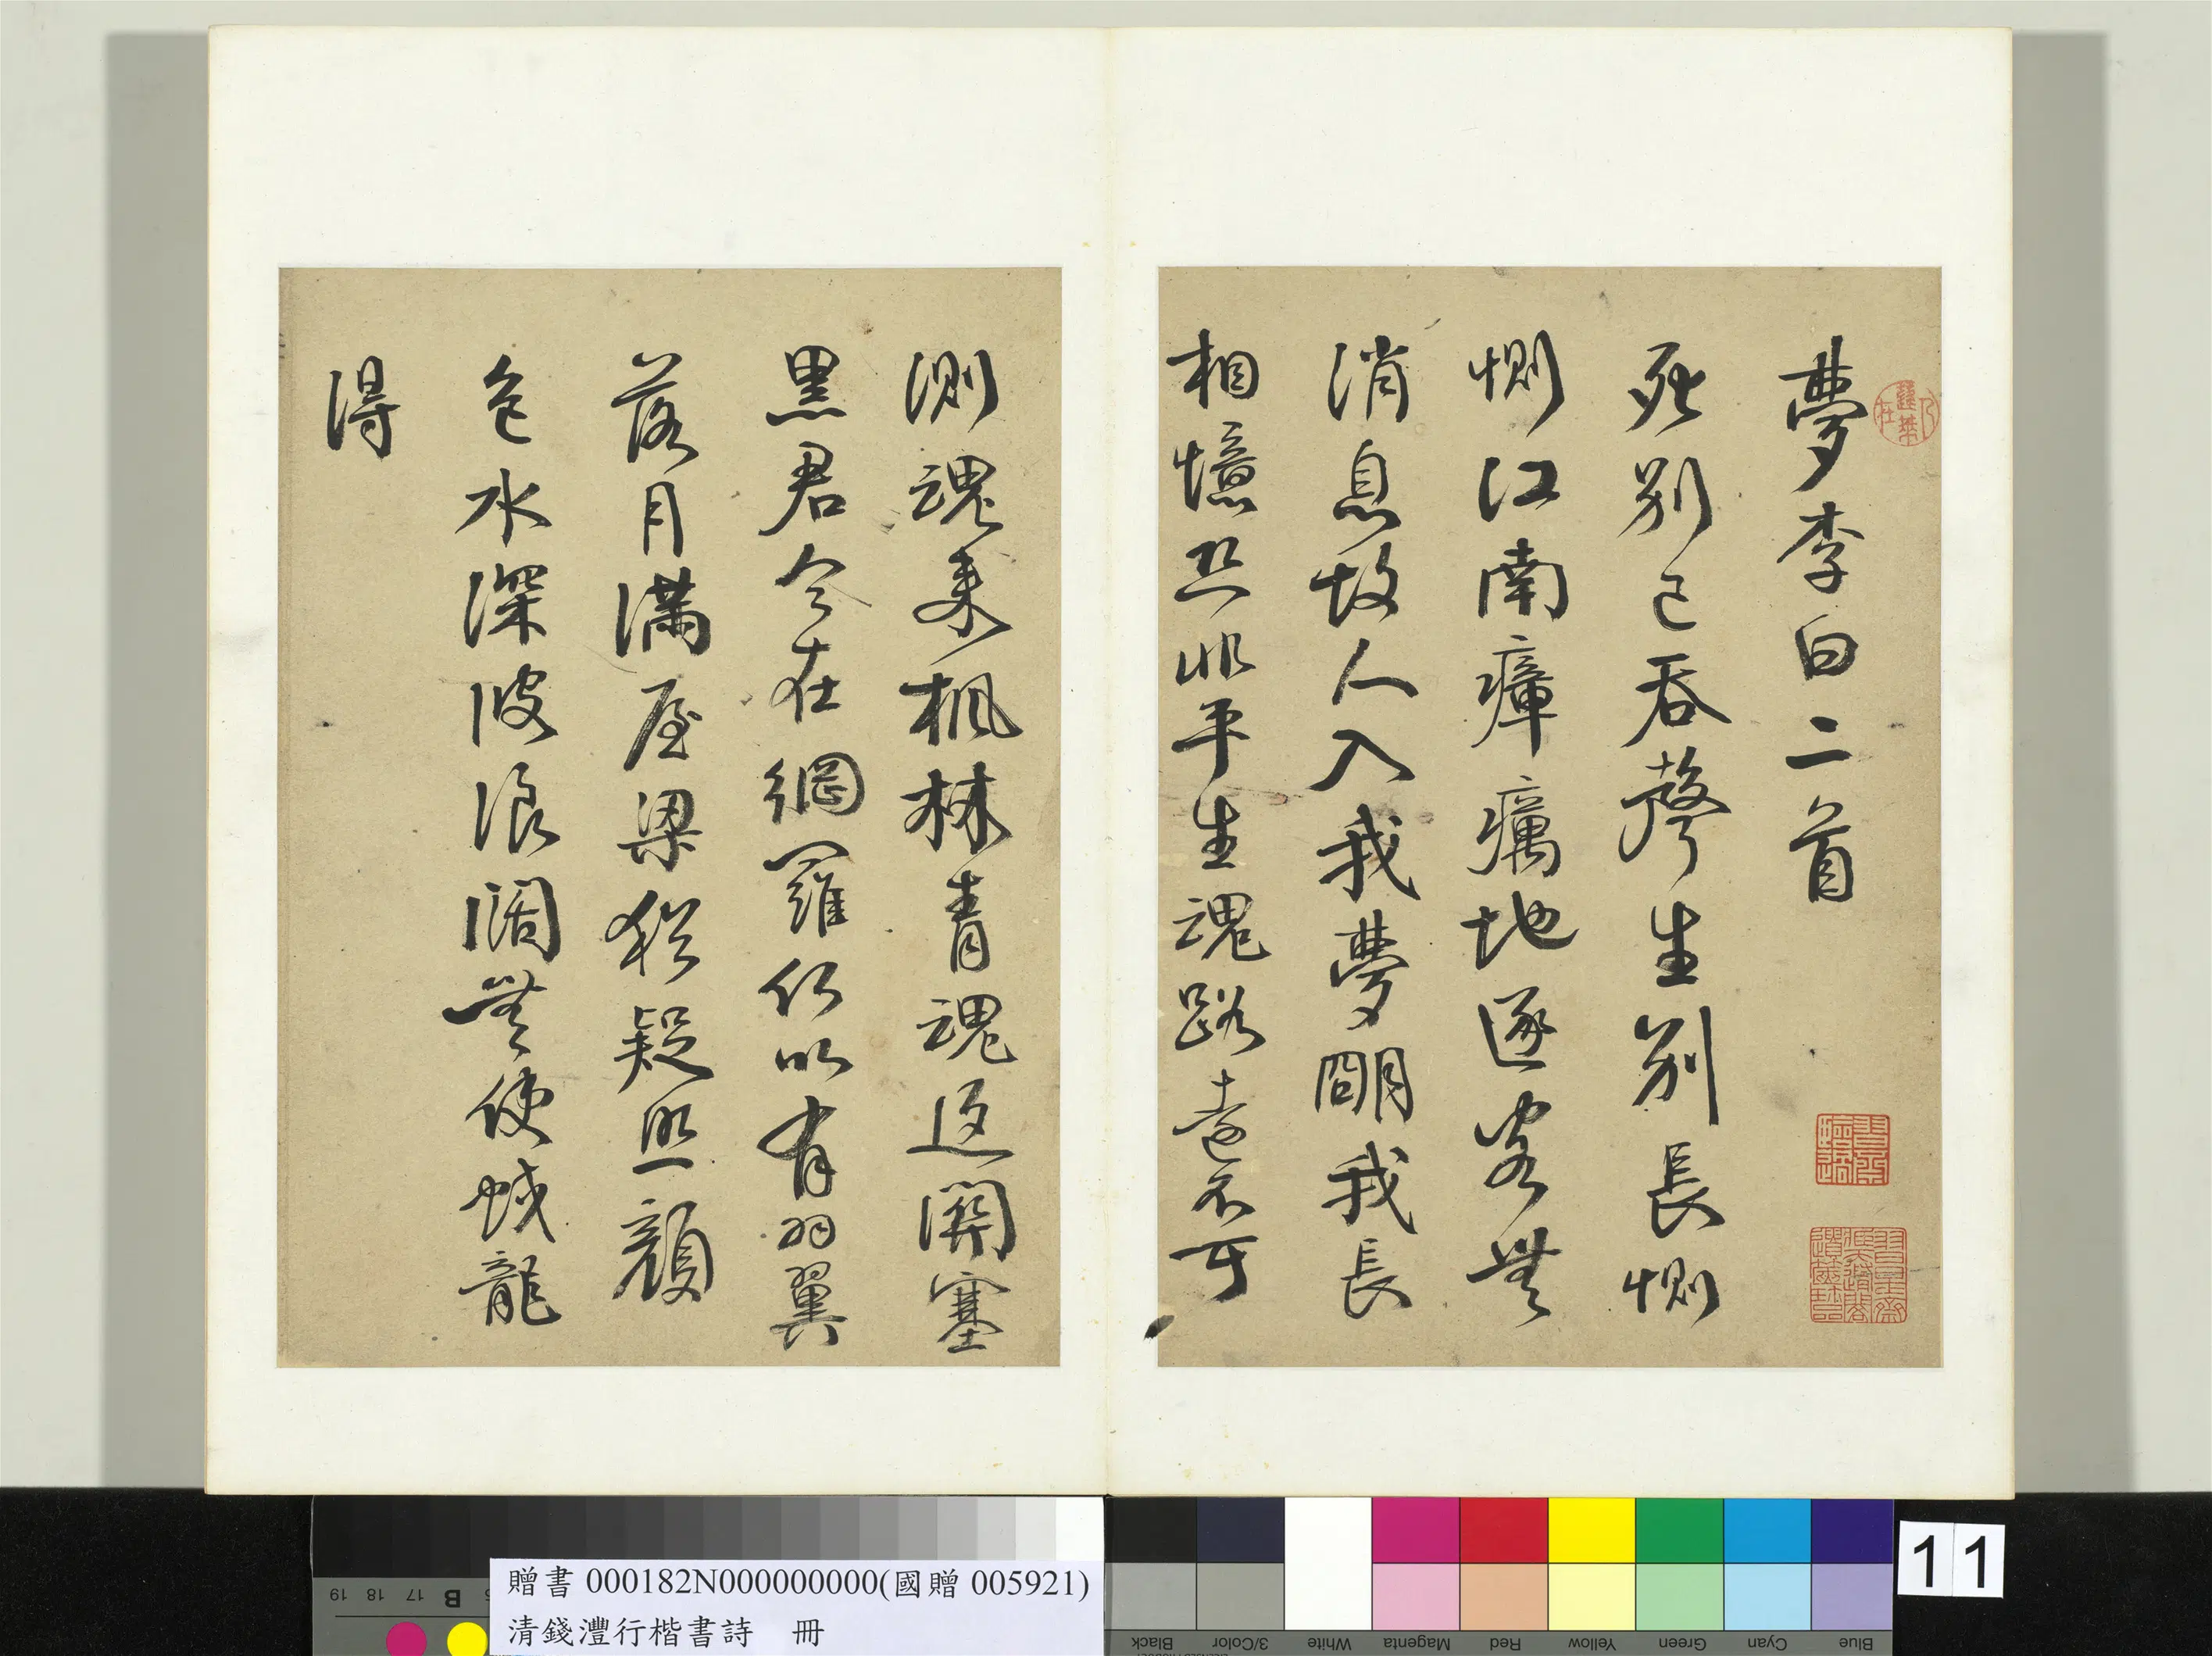 夢李白二首
死別已吞聲生別長惻
惻江南瘴癘地逐客無
消息故人入我夢朙我長
相憶恐非平生魂路遠不可
測魂來楓林青魂返關塞
黑君今在網羅何以有羽翼
落月滿屋梁猶疑照顏
色水深波浪闊無使蛟龍
得
贈書 000182N000000000(國贈 005921)
清錢灃行楷書詩　冊
11
Blue Cyan Green Yellow Red Magenta White 3/Color Black
B 17 18 19